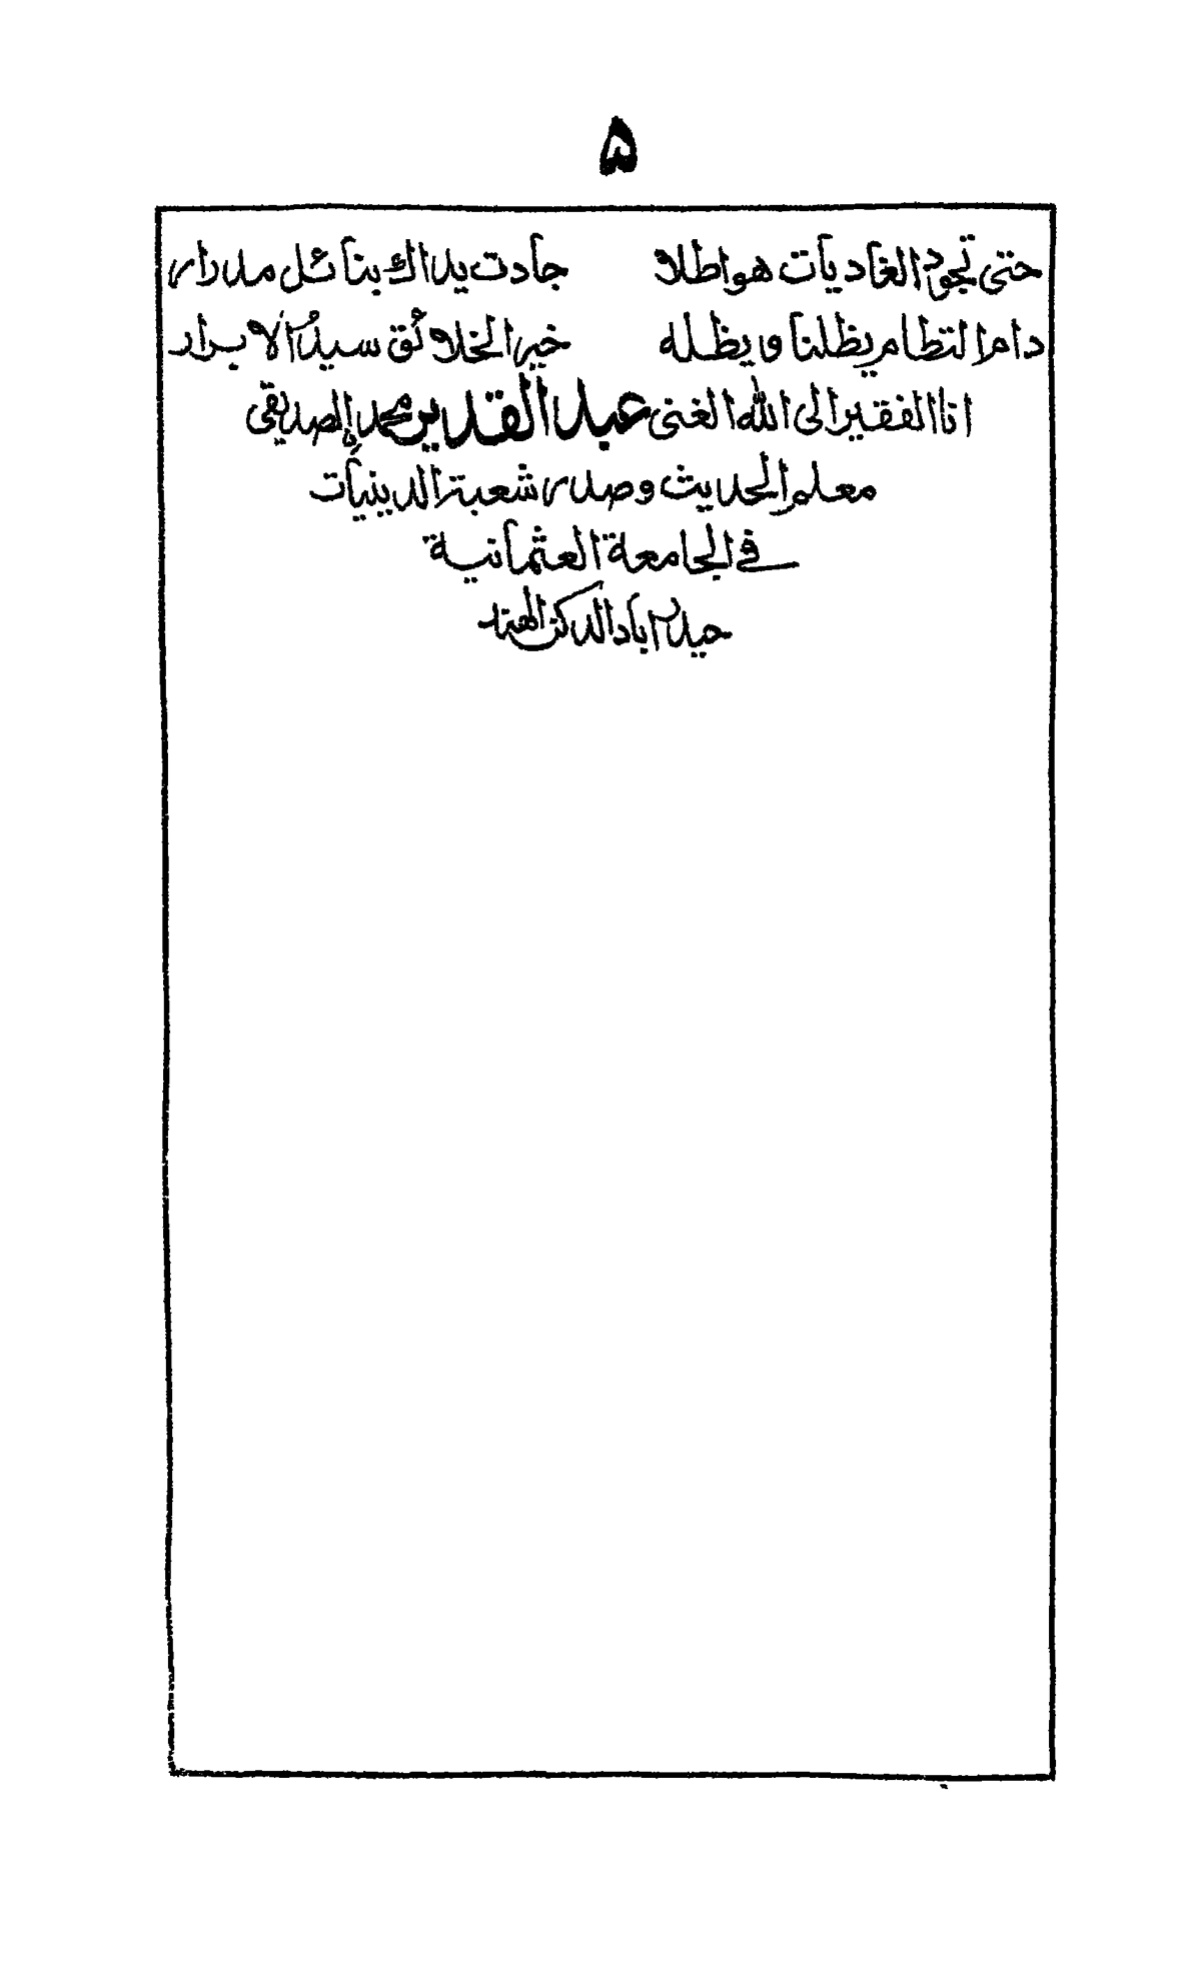 ۵
حتى تجود الغاديات هواطلا جادت يداك بنائل مدرار
دام النظام يظلنا ويظله خير الخلائق سيد الابرار
انا الفقير الى الله الغنى عبد القدير محمد الصديقى
معلم الحديث وصدر شعبة الدينيات
في الجامعة العثمانية
حيدراباد الدكن الهند